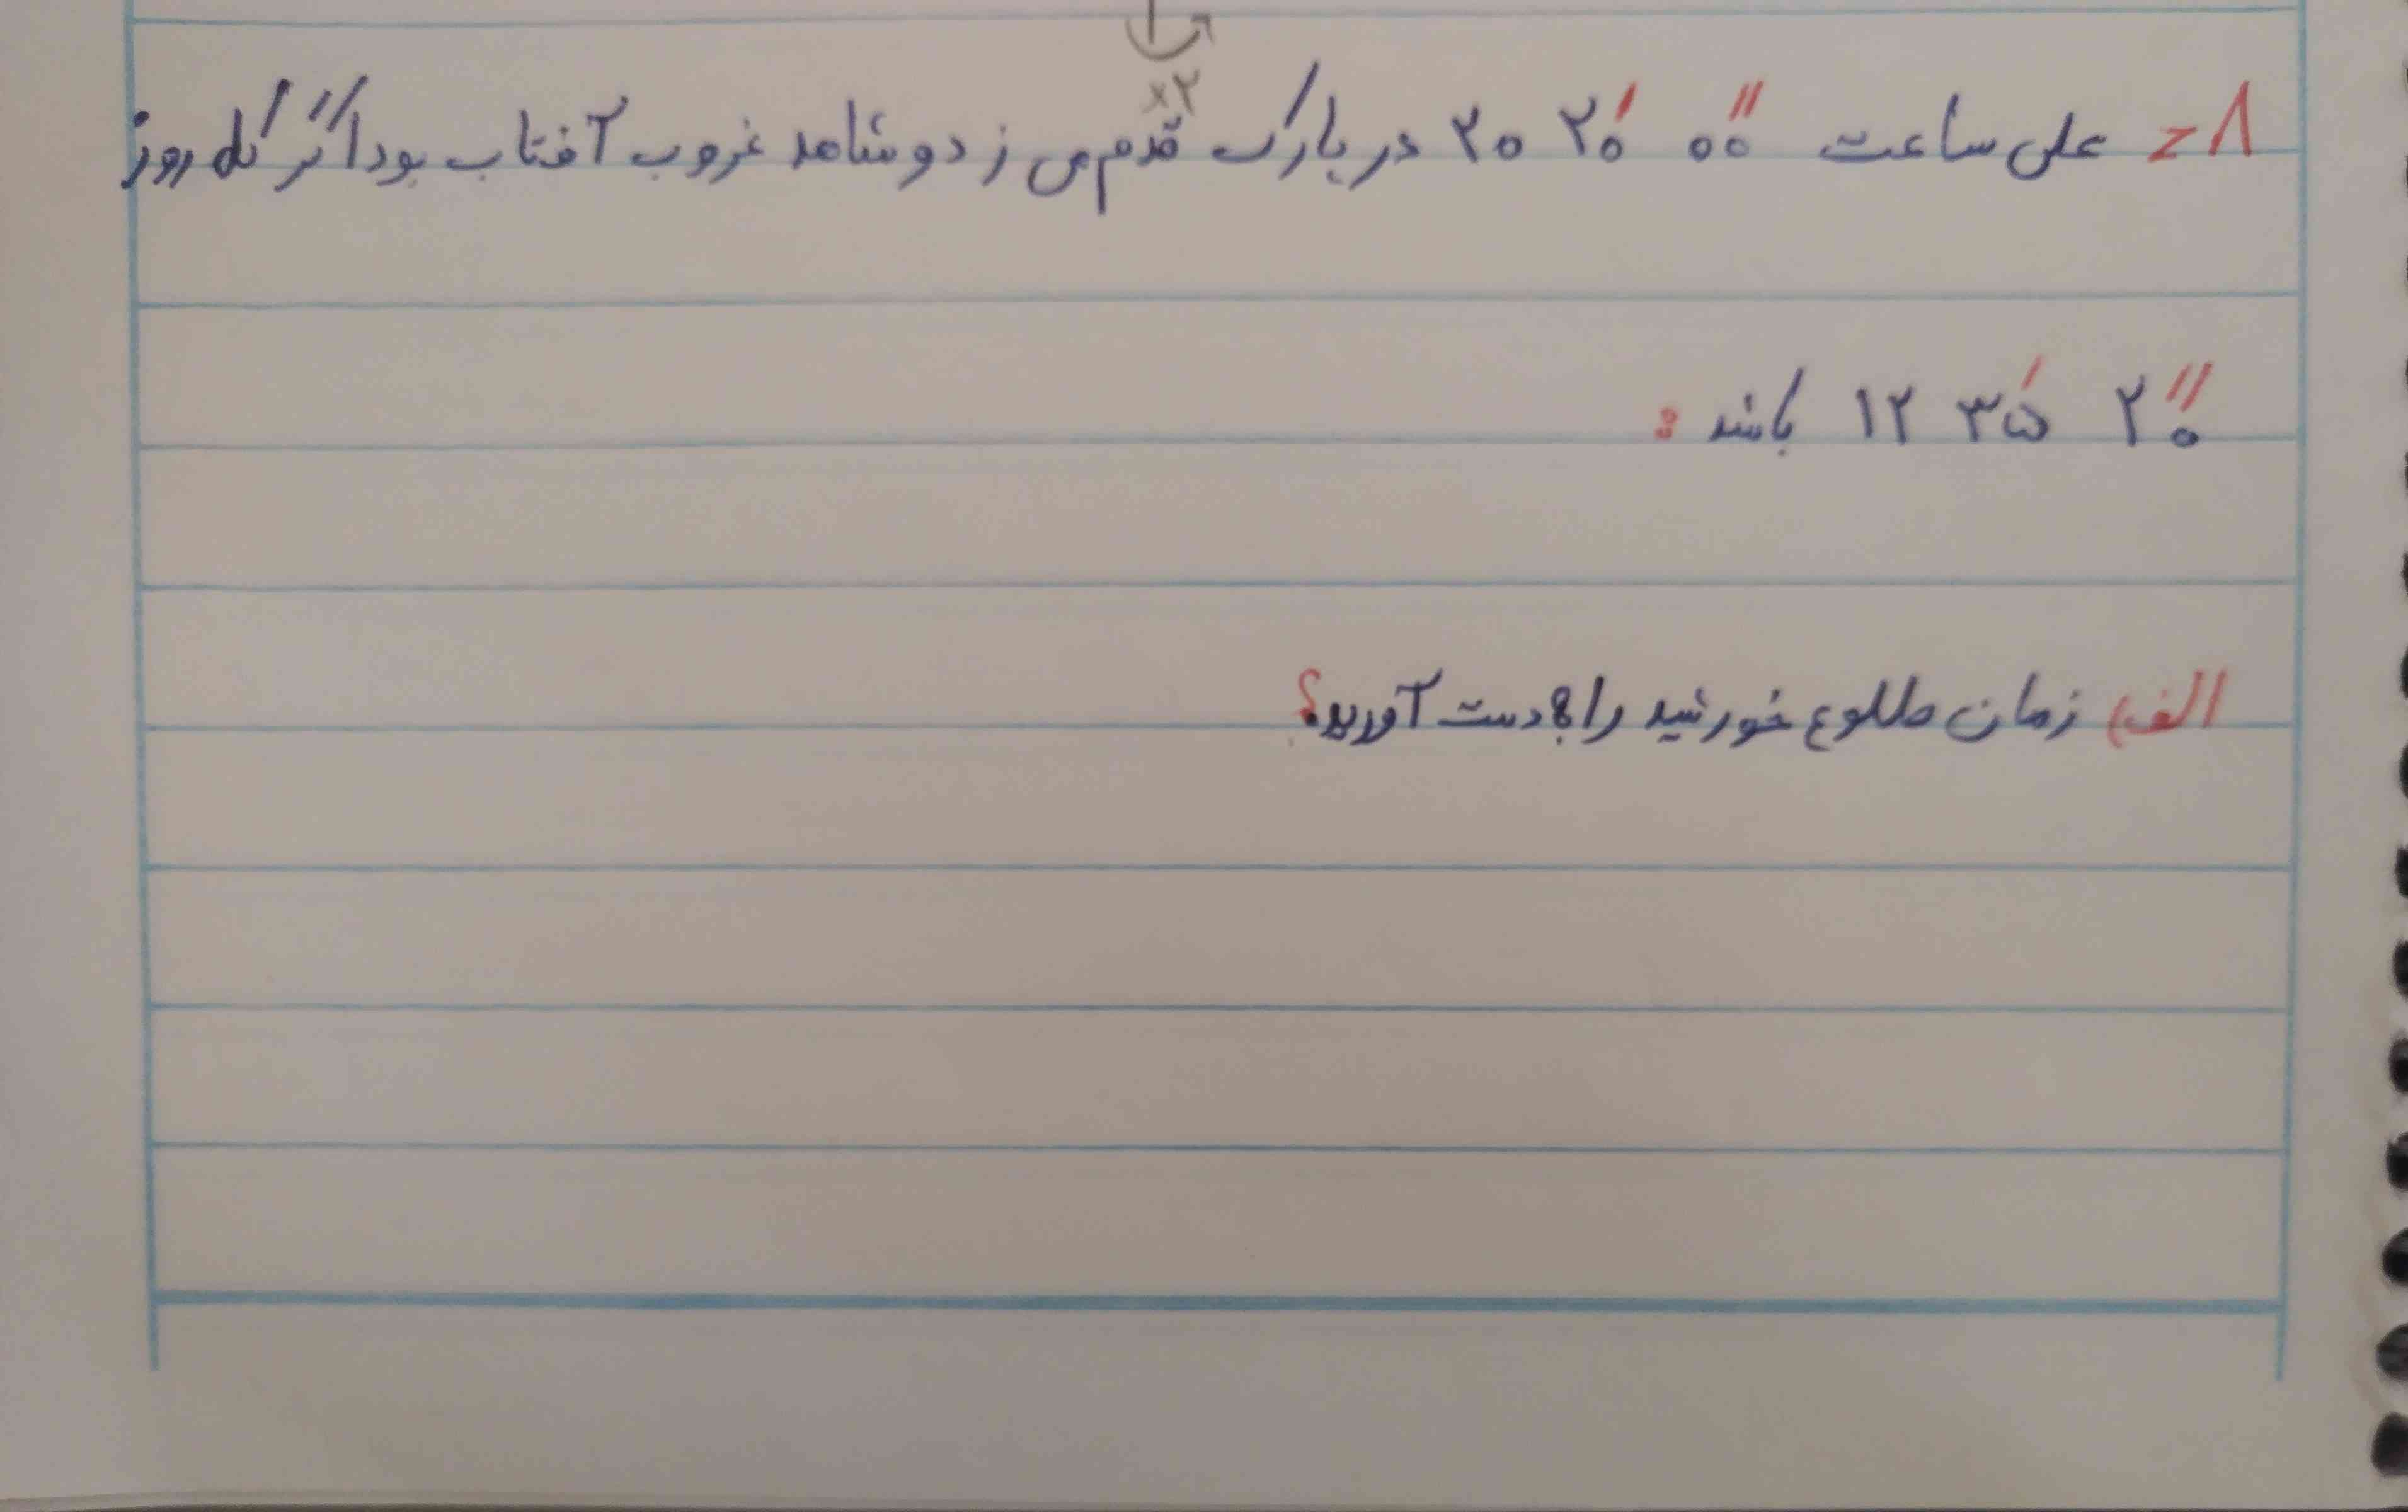 ×۲
۸- علی ساعت ۰۰″ ۲۰′ ۲۰ در پارک قدم می زد و شاهد غروب آفتاب بود اگر کل روز
۲۰″ ۳۵′ ۱۲ باشد :
الف) زمان طلوع خورشید را به دست آورید؟